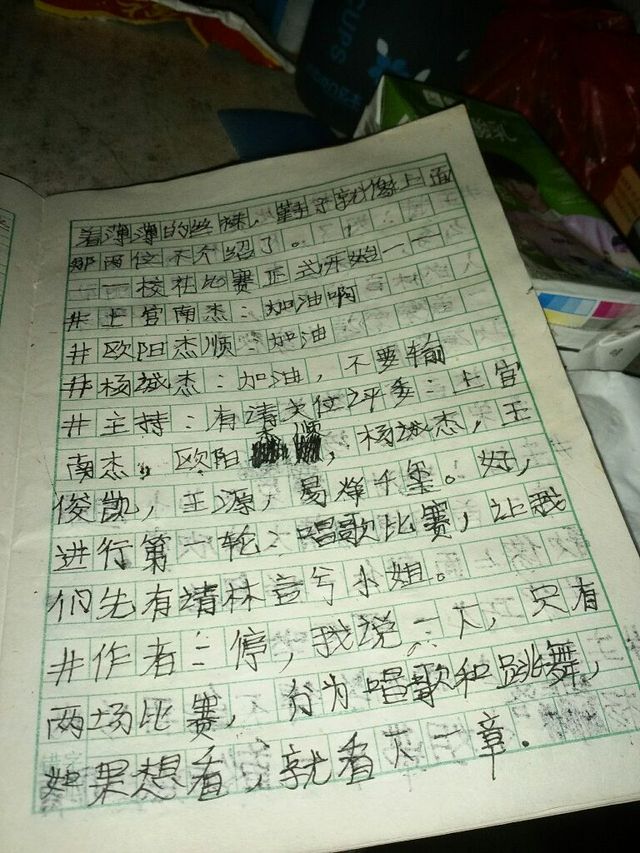 着薄薄的丝袜，鞋子就像上面
那两位不介绍了。
——校花比赛正式开始——
#上官南杰：加油啊
#欧阳杰顺：加油
#杨诚杰：加油，不要输
#主持：有请六位评委：上官
南杰，欧阳杰顺，杨诚杰，王
俊凯，王源，易烊千玺。好，
进行第一轮：唱歌比赛，让我
们先有请林兮小姐。
#作者：停，我说一下，只有
两场比赛，分为唱歌和跳舞，
如果想看，就看下一章.
CUPS
酸乳